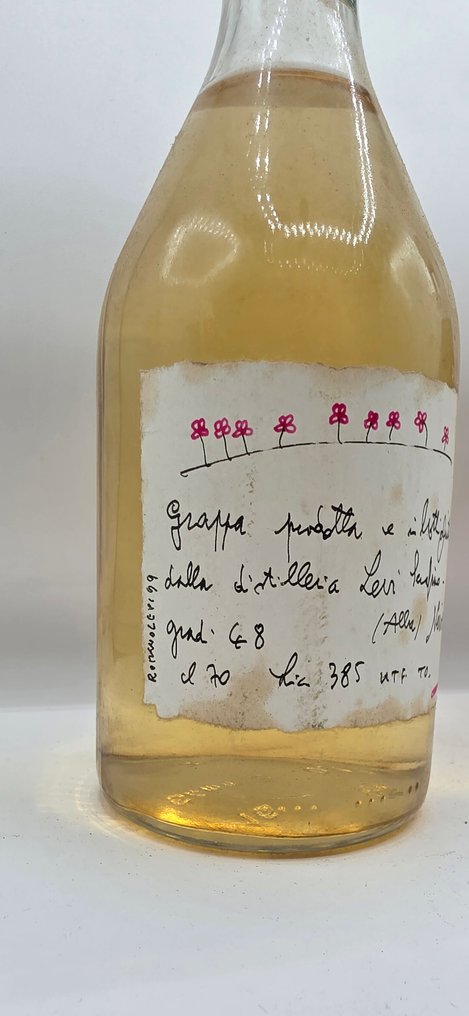 Grappa prodotta e imbottigli
dalla distilleria Levi Serafino
gradi 48 (Alba) N
cl 70 Lic 385 UTF TO.
ROMANO LEVI 99